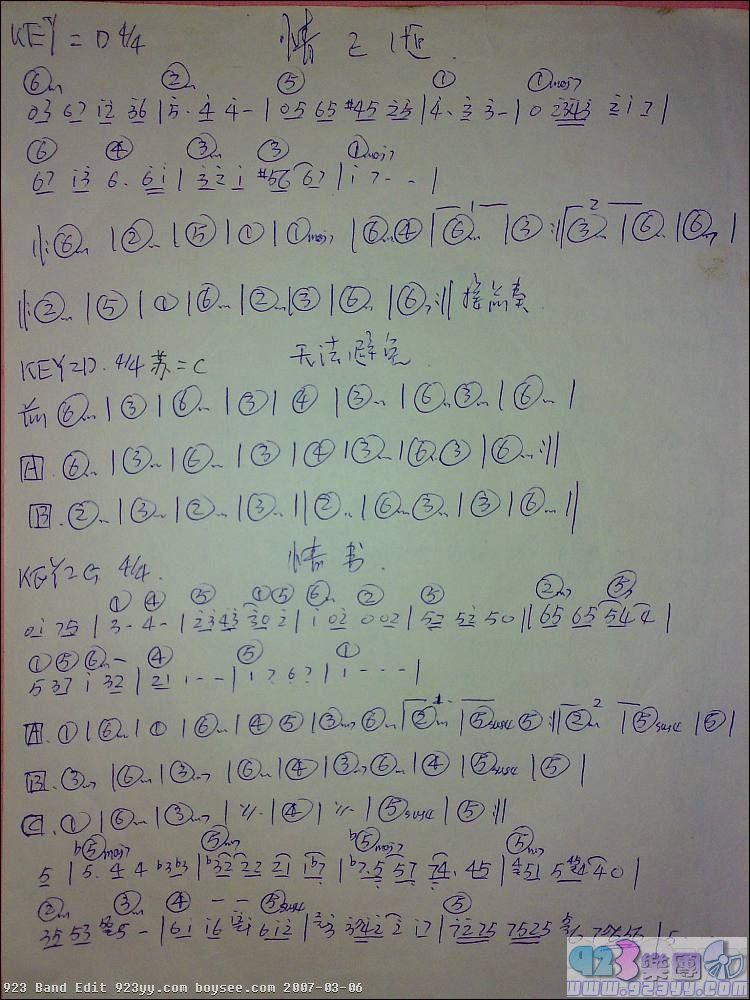 KEY=D 4/4 情之逝
⑥m ② m ⑤ ① ①maj7
03 67 i2 36 | 5· 4 4- | 05 65 #45 25 | 4· 3 3- | 0 2343 2 i 7 |
⑥ ④ ③m ③ ①maj7
67 i3 6· 6i | 3 2 i #56 67 | i 7 - - |
||: ⑥m | ②m | ⑤ | ① | ①maj7 | ⑥m ④ | 1 ⑥m | ③ :|| 2 ③m | ⑥m | ⑥m7 |
||: ②m | ⑤ | ① | ⑥m | ②m | ③ | ⑥m | ⑥m7 :||
KEY=D 4/4 苏=C 无法避免
前 ⑥m | ③ | ⑥m | ③ | ④ | ③m | ⑥m ③m | ⑥m |
A. ⑥m | ③m | ⑥m | ③ | ④ | ③m | ⑥m ③ | ⑥m :||
B. ②m | ③m | ②m | ③m || ②m | ⑥m ③m | ③ | ⑥m ||
KEY=G 4/4. 情书
① ④ ⑤ ① ⑤ ⑥m ② ⑤ ②m7 ⑤
0i 75 | 3- 4- | 2343 30 2 | i 02 002 | 52 52 50 || 65 65 54 4 |
① ⑤ ⑥m - ④ ⑤ ①
5 37 i 32 | 21 i - - | i 7 6 7 | i - - - |
A. ① | ⑥m | ① | ⑥m | ④ ⑤ | ③m7 ⑥m | 1 ②m | ⑤sus4 ⑤ :|| 2 ②m | ⑤sus4 | ⑤ |
B. ③m7 | ⑥m | ③m7 | ⑥m | ④ | ③m7 ⑥m | ④ | ⑤sus4 | ⑤ |
C. ① | ⑥m | ③m7 | 〃 | ④ | 〃 | ⑤sus4 | ⑤ :||
b⑤maj7 ⑤m7 b⑤maj7 ⑤m7
5 | 5· 4 4 b3b3 | b32 22 21 1b7 | b7·5 57 74· 45 |
②m ③m ④ - - ⑤sus4 ⑤
923 Band Edit 923yy.com boysee.com 2007-03-06
923樂團
www.923yy.com